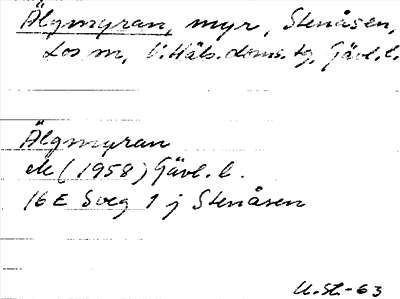 Älgmyran, myr, Stenåsen,
Los sn, V. Häls. doms. tg, Gävl. l.
Älgmyran
ek (1958) Gävl. l.
16 E Sveg 1 j Stenåsen
U. St-63